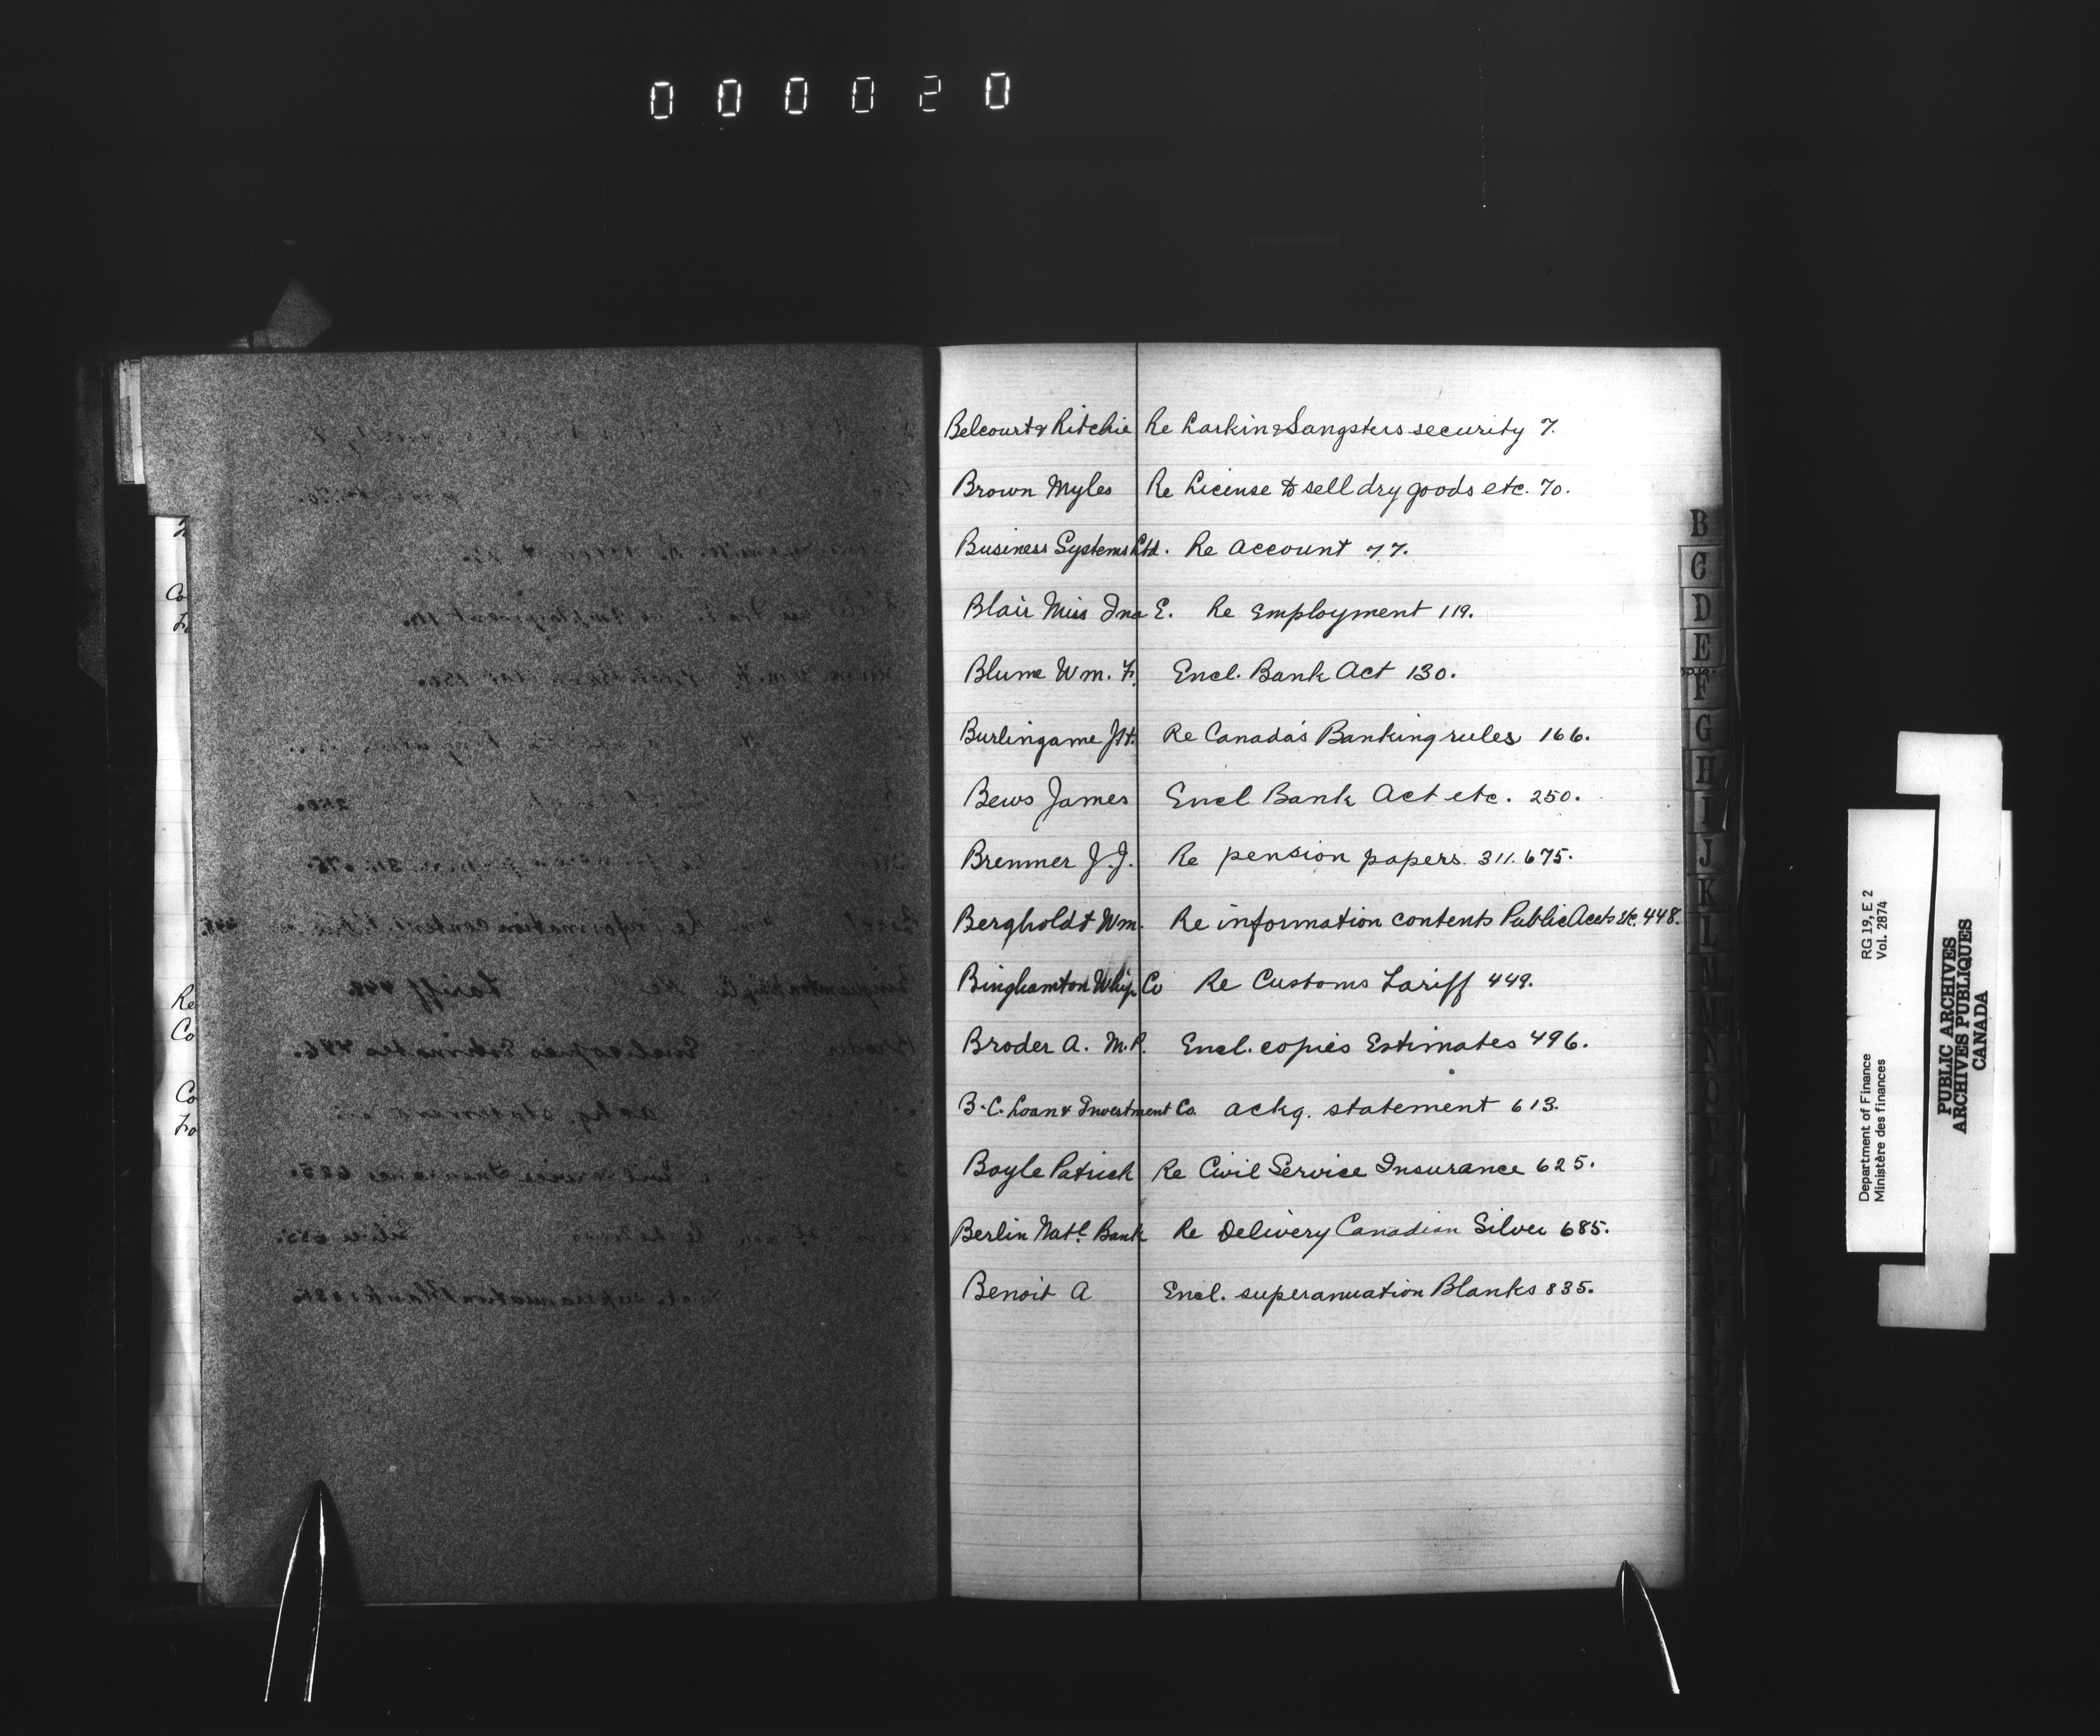 000020
Belcourt & Ritchie Re Larkin & Sangsters security 7.
Brown Myles Re License to sell dry goods etc. 70.
Business Systems Ltd. Re Account 77.
Blair Miss Ina E. Re Employment 119.
Blume Wm. F. Encl. Bank Act 130.
Burlingame Re Canada's Banking rules 166.
Bews James Encl Bank Act etc. 250.
Bremner J.J. Re pension papers. 311. 675.
Bergholdt Wm. Re information contents Public Accts etc. 448.
Binghamton Whip Co Re Customs Tariff 449.
Broder A. M.P. Encl. copies Estimates 496.
B.C. Loan & Investment Co. ackg. statement 613.
Boyle Patrick Re Civil Service Insurance 625.
Berlin Natl. Bank Re Delivery Canadian Silver 685.
Benoit A Encl. superanuation Blanks 835.
B
C
D
E
F
G
H
I
J
K
L
M
N
O
Re
Co
Co
Department of Finance RG 19, E 2
Ministère des finances Vol. 2874
PUBLIC ARCHIVES
ARCHIVES PUBLIQUES
CANADA